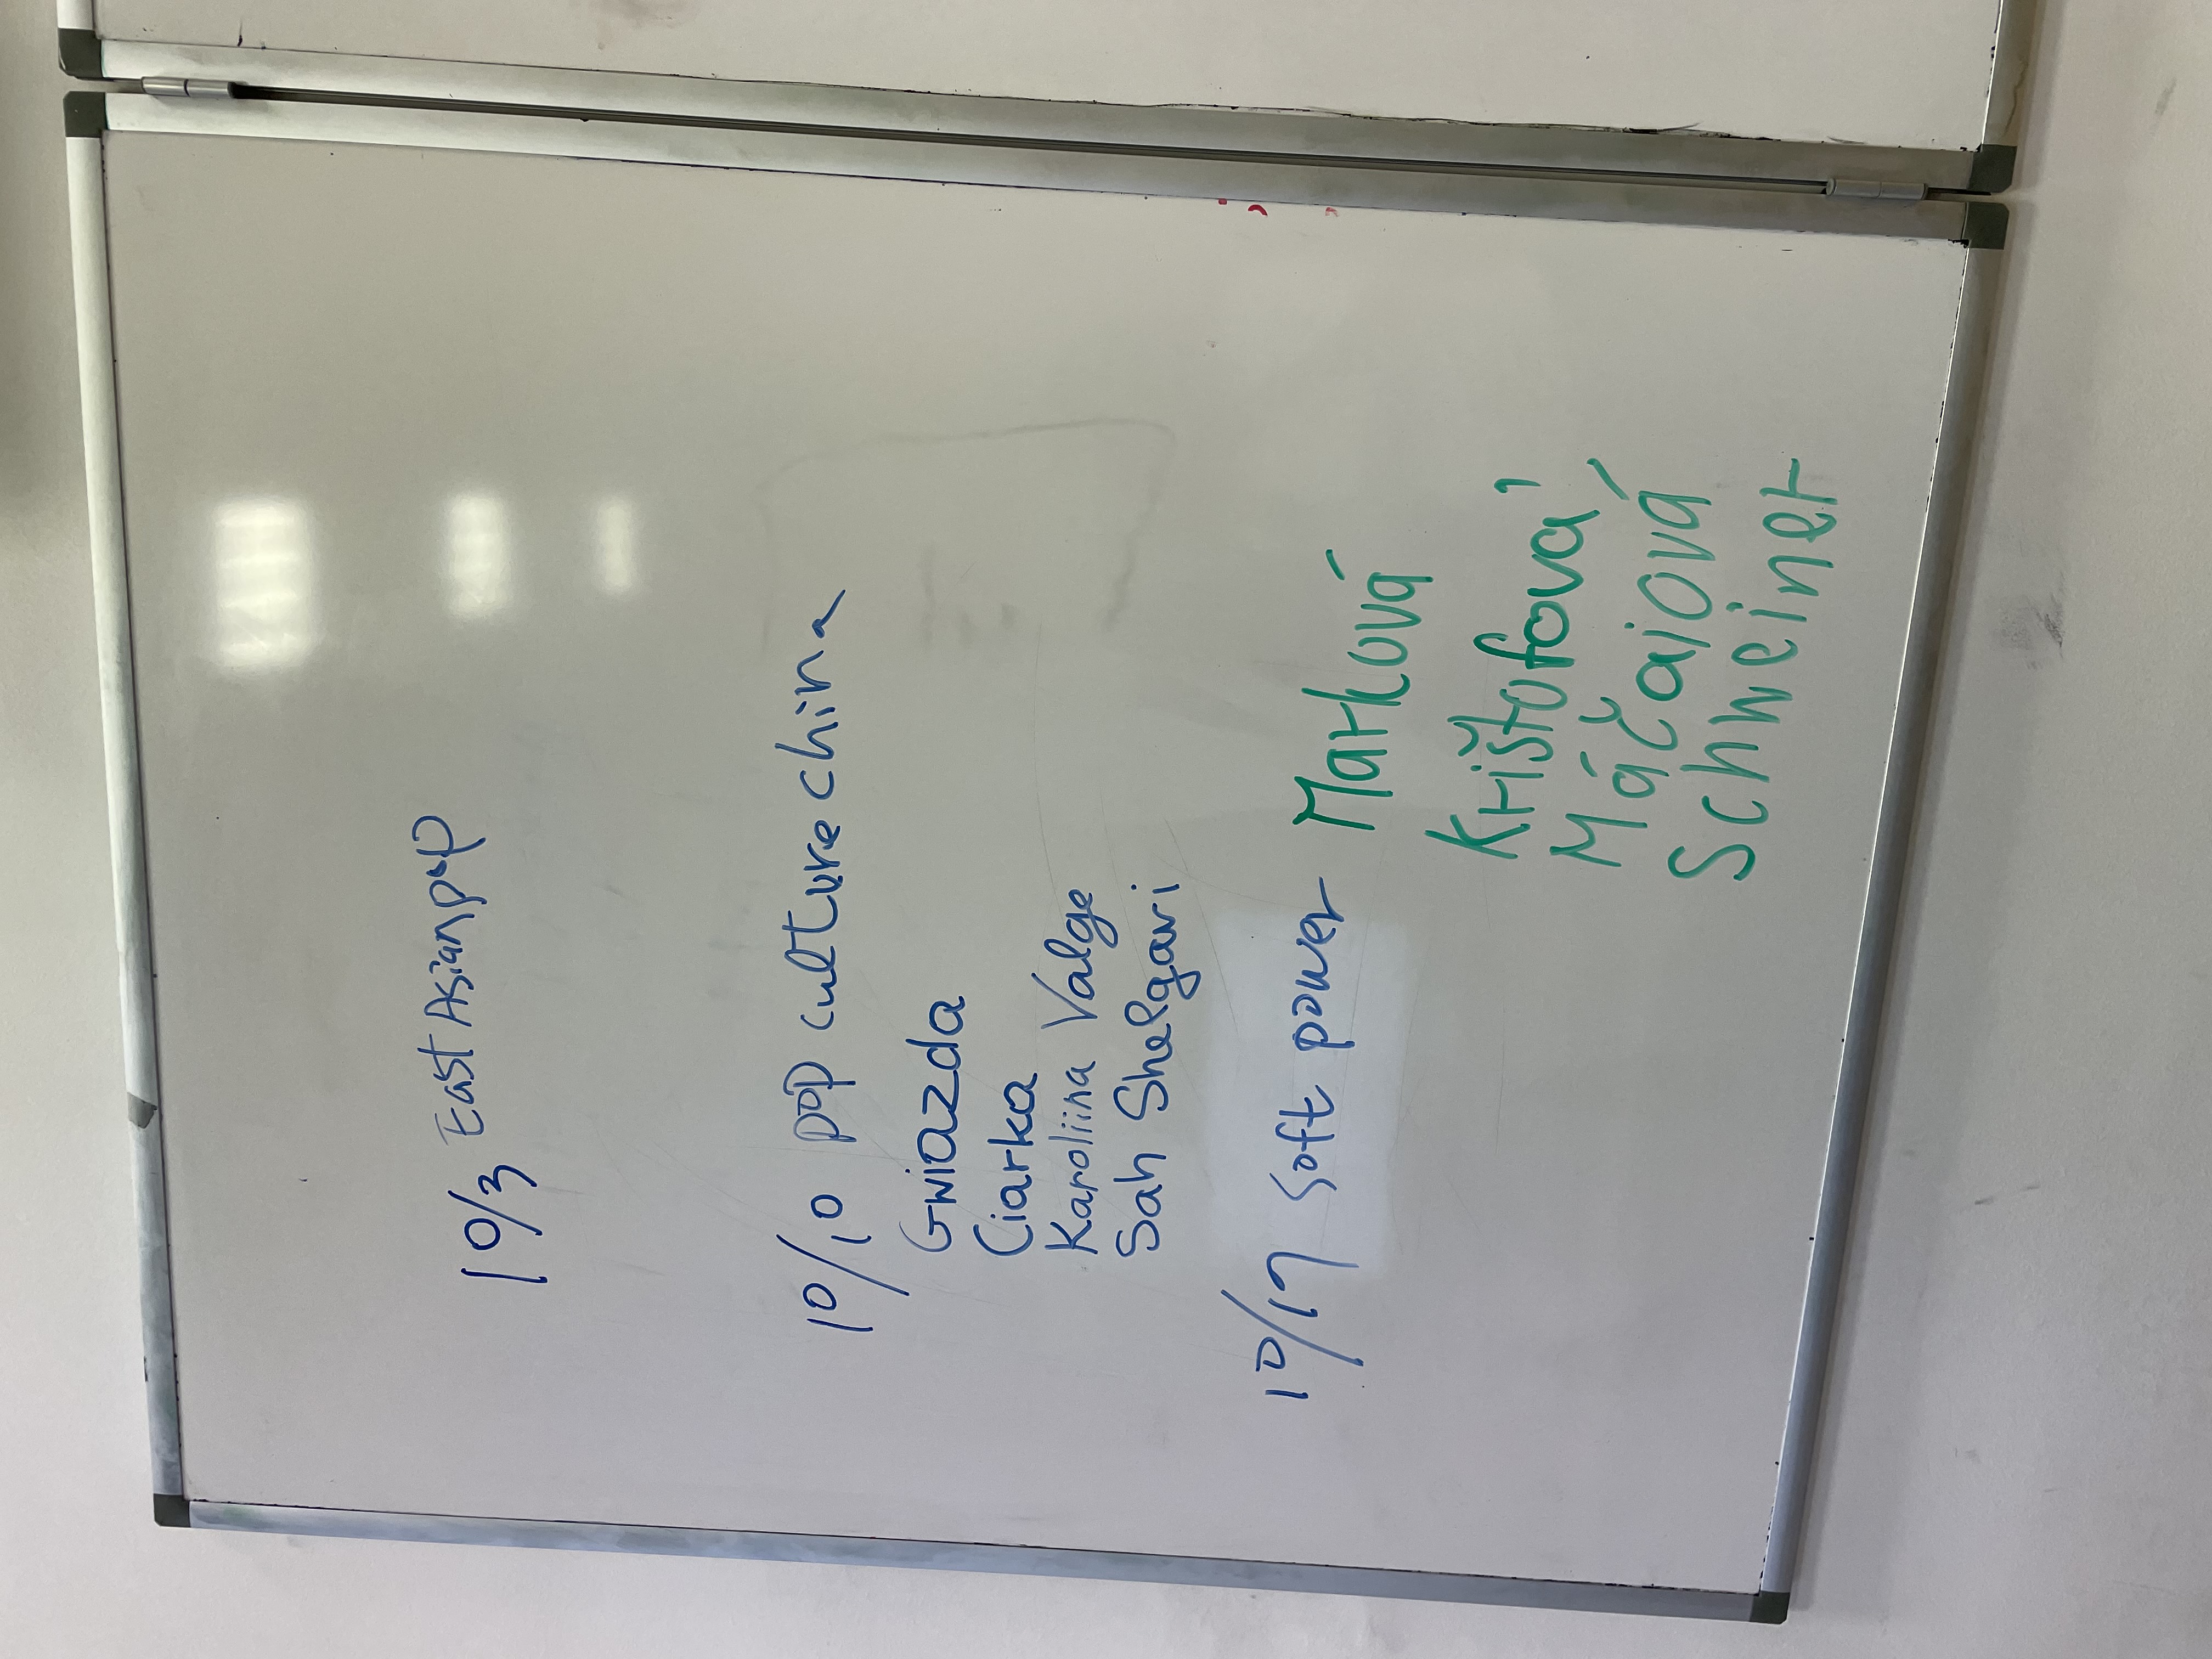 10/3 East Asian pop
10/10 pop culture china
Gwiazda
Ciarka
Karoliina Valge
Sah Shelgavi
10/17 Soft power Marková
Krištofová
Máčaiová
Schweiner